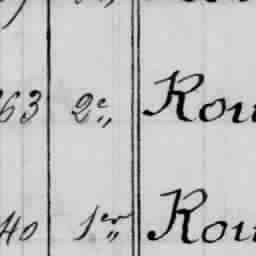 63 2e„ Rou
40 1er„ Rou